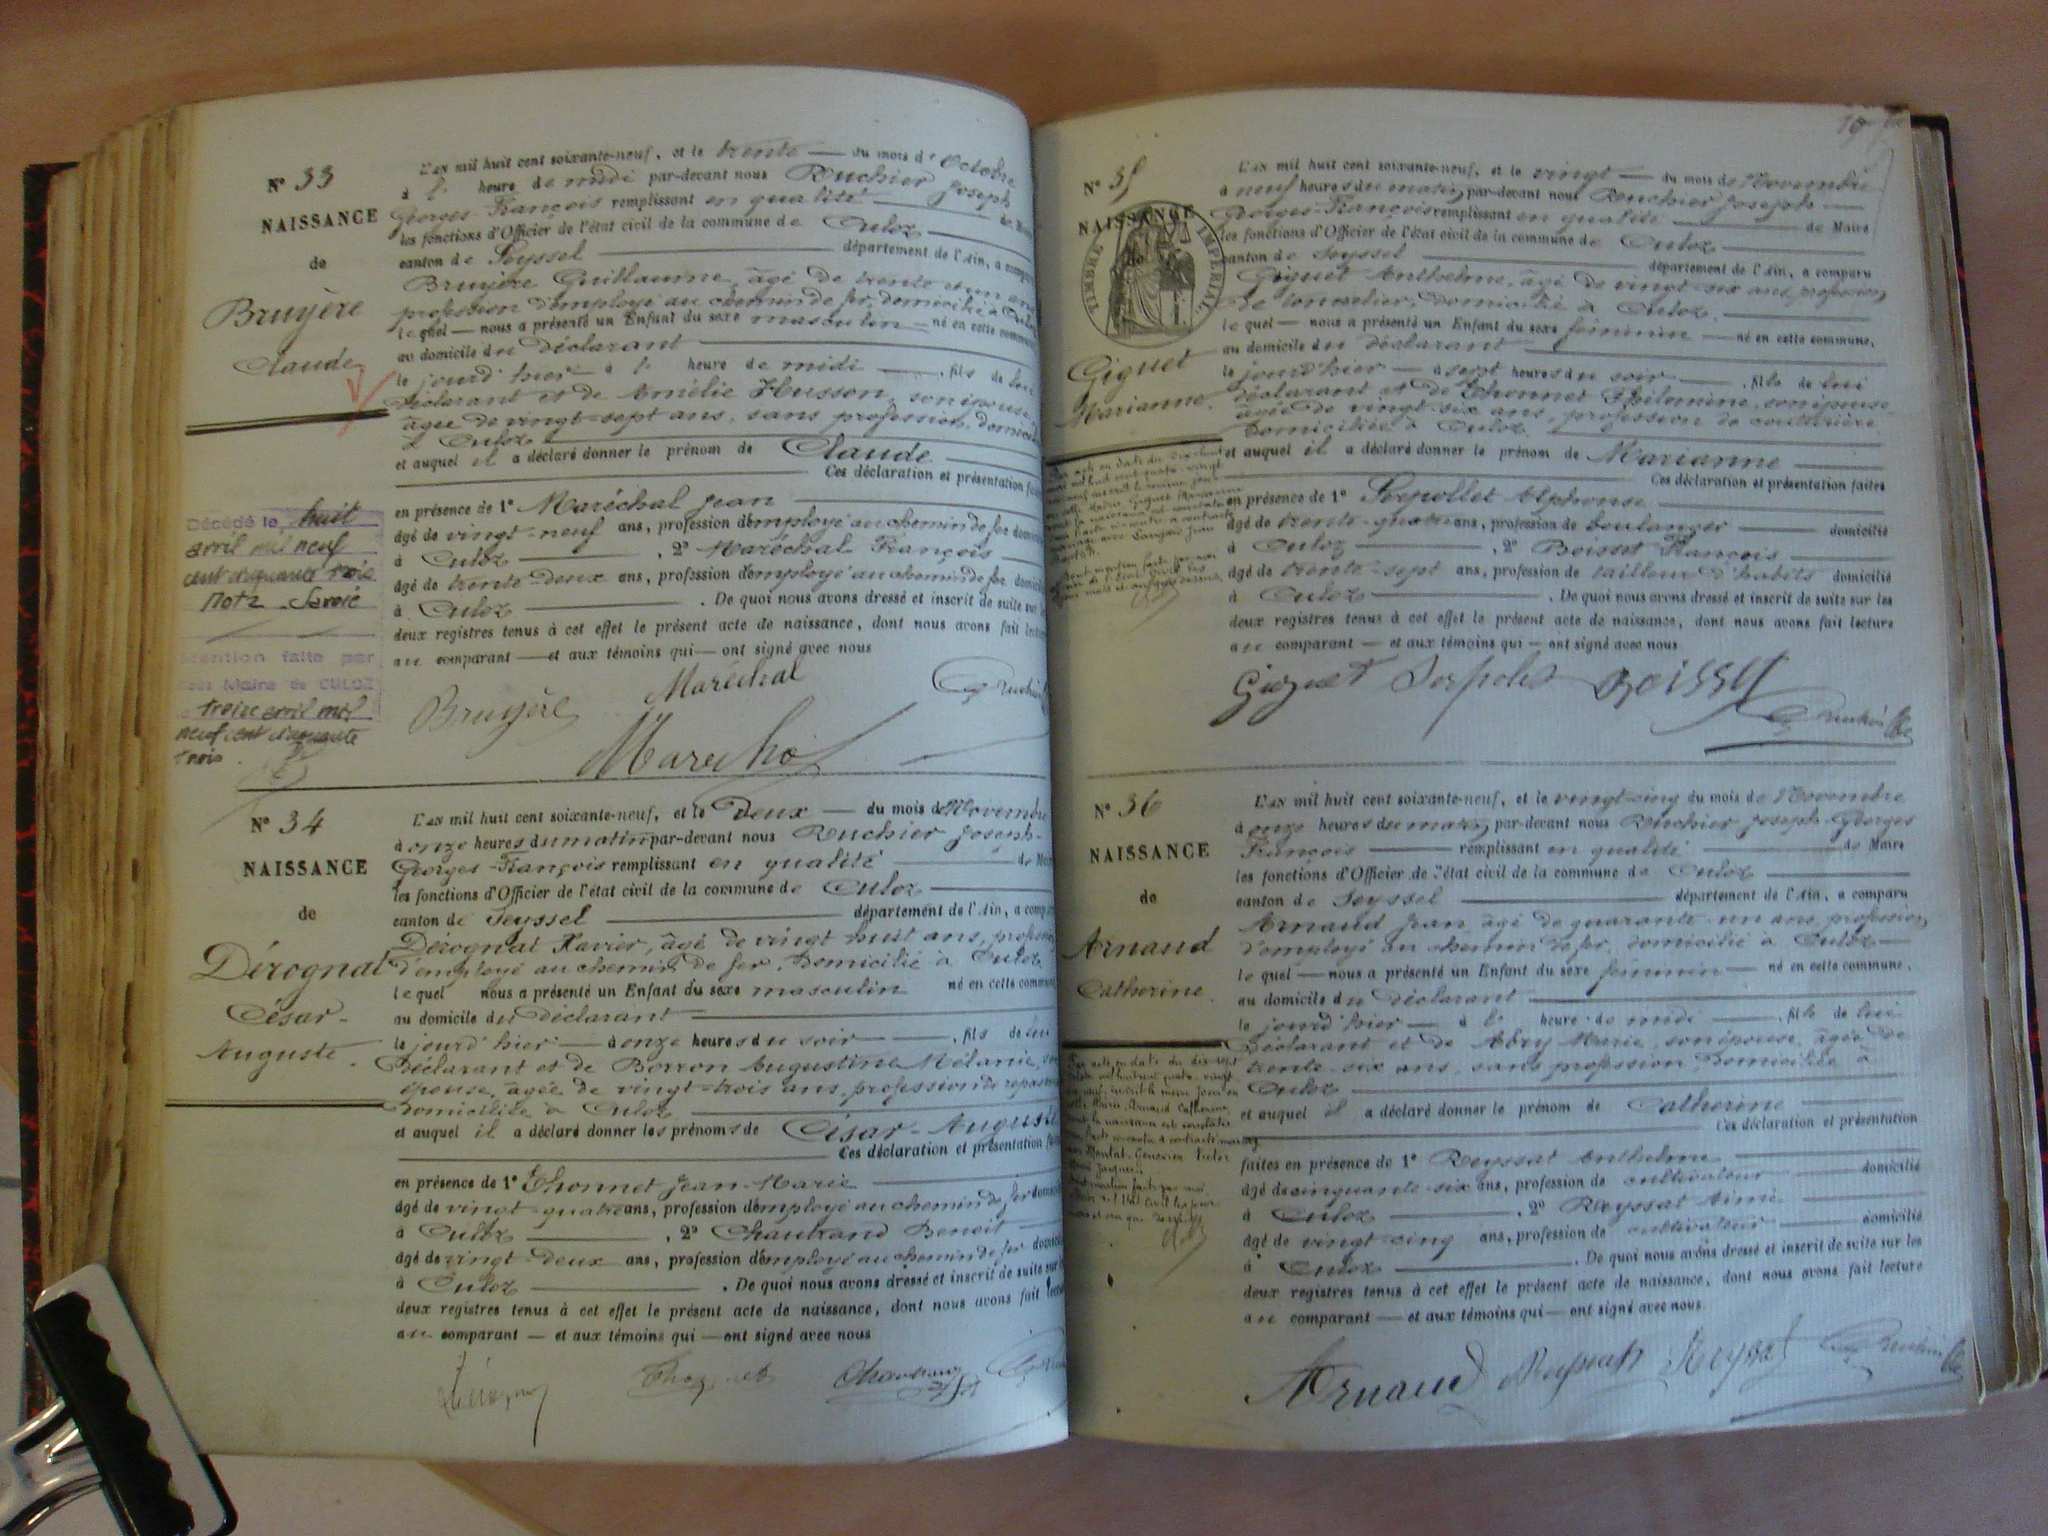 N° 33
NAISSANCE
de
Bruyère
Claude
L'AN mil huit cent soixante-neuf, et le trente — du mois d'Octobre
à l' heure de midi par-devant nous Ruchier Joseph
Georges-François remplissant en qualité — de Maire
les fonctions d'Officier de l'état civil de la commune de Culoz
canton de Seyssel — département de l'Ain, a comparu
Bruyère Guillaume, âgé de trente et un ans
profession d'employé au chemin de fer, domicilié à Culoz
lequel — nous a présenté un Enfant du sexe masculin — né en cette commune
au domicile du déclarant
le jourd'hier — à l' heure de midi — , fils de lui
déclarant et de Amélie Husson, son épouse
âgée de vingt-sept ans, sans profession, domiciliée
à Culoz
et auquel il a déclaré donner le prénom de Claude
Ces déclaration et présentation faites
en présence de 1° Maréchal Jean
âgé de vingt-neuf ans, profession d'employé au chemin de fer domicilié
à Culoz — , 2° Maréchal François
âgé de trente-deux ans, profession d'employé au chemin de fer domicilié
à Culoz — . De quoi nous avons dressé et inscrit de suite sur les
deux registres tenus à cet effet le présent acte de naissance, dont nous avons fait lecture
au comparant — et aux témoins qui — ont signé avec nous
Bruyère Maréchal
Marécha
Décédé le huit
avril mil neuf
cent cinquante trois
Motz Savoie
Mention faite par
nous Maire de CULOZ
le treize avril mil
neuf cent cinquante
trois
N° 34
NAISSANCE
de
Dérognat
César-
Auguste
L'AN mil huit cent soixante-neuf, et le Deux — du mois de Novembre
à onze heures du matin par-devant nous Ruchier Joseph-
Georges-François remplissant en qualité — de Maire
les fonctions d'Officier de l'état civil de la commune de Culoz
canton de Seyssel — département de l'Ain, a comparu
Dérognat Xavier, âgé de vingt huit ans, profession
d'employé au chemin de fer, domicilié à Culoz
lequel nous a présenté un Enfant du sexe masculin né en cette commune
au domicile du déclarant
le jourd'hier — à onze heures du soir — , fils de lui
déclarant et de Borron Augustine Mélanie, son
épouse, âgée de vingt-trois ans, profession de repasseuse
domiciliée à Culoz
et auquel il a déclaré donner les prénoms de César-Auguste
Ces déclaration et présentation faites
en présence de 1° Thonnet Jean-Marie
âgé de vingt-quatre ans, profession d'employé au chemin de fer domicilié
à Culoz — , 2° Chautrand Benoit
âgé de vingt-deux ans, profession d'employé au chemin de fer domicilié
à Culoz — . De quoi nous avons dressé et inscrit de suite sur les
deux registres tenus à cet effet le présent acte de naissance, dont nous avons fait lecture
au comparant — et aux témoins qui — ont signé avec nous
N° 35
NAISSANCE
TIMBRE IMPÉRIAL.
Giguet
Marianne
L'AN mil huit cent soixante-neuf, et le vingt — du mois de Novembre
à neuf heures du matin par-devant nous Ruchier Joseph
Georges-François remplissant en qualité — de Maire
les fonctions d'Officier de l'état civil de la commune de Culoz
canton de Seyssel — département de l'Ain, a comparu
Giguet Anthelme, âgé de vingt-six ans, profession
de tonnelier, domicilié à Culoz
lequel — nous a présenté un Enfant du sexe féminin — né en cette commune,
au domicile du déclarant
le jourd'hier — à sept heures du soir — , fille de lui
déclarant et de Thonnet Philomène, son épouse
âgée de vingt-six ans, profession de couturière
domiciliée à Culoz
et auquel il a déclaré donner le prénom de Marianne
Ces déclaration et présentation faites
en présence de 1° Serpollet Alphonse
âgé de trente-quatre ans, profession de boulanger — domicilié
à Culoz — , 2° Boisset François
âgé de trente-sept ans, profession de tailleur d'habits domicilié
à Culoz — . De quoi nous avons dressé et inscrit de suite sur les
deux registres tenus à cet effet le présent acte de naissance, dont nous avons fait lecture
au comparant — et aux témoins qui — ont signé avec nous
Giguet
N° 36
NAISSANCE
de
Arnaud
Catherine
L'AN mil huit cent soixante-neuf, et le vingt-cinq du mois de Novembre
à onze heures du matin, par-devant nous Ruchier Joseph-Georges
François — remplissant en qualité — de Maire
les fonctions d'Officier de l'état civil de la commune de Culoz
canton de Seyssel — département de l'Ain, a comparu
Arnaud Jean, âgé de quarante-un ans, profession
d'employé au chemin de fer, domicilié à Culoz
lequel — nous a présenté un Enfant du sexe féminin — né en cette commune,
au domicile du déclarant
le jourd'hier — à l' heure de midi — , fille de lui
déclarant et de Abry Marie, son épouse, âgée de
trente-six ans, sans profession, domiciliée à
Culoz
et auquel il a déclaré donner le prénom de Catherine
Ces déclaration et présentation
faites en présence de 1° Reyssat Anthelme
âgé de cinquante-six ans, profession de cultivateur domicilié
à Culoz — , 2° Reyssat Aimé
âgé de vingt-cinq ans, profession de cultivateur — domicilié
à Culoz — . De quoi nous avons dressé et inscrit de suite sur les
deux registres tenus à cet effet le présent acte de naissance, dont nous avons fait lecture
au comparant — et aux témoins qui — ont signé avec nous.
Arnaud